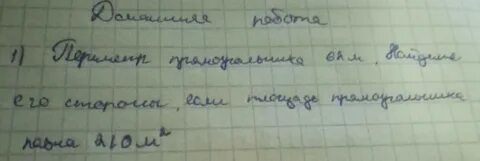 Домашняя работа
1) Периметр прямоугольника 62 м. Найдите
его стороны, если площадь прямоугольника
равна 210 м²